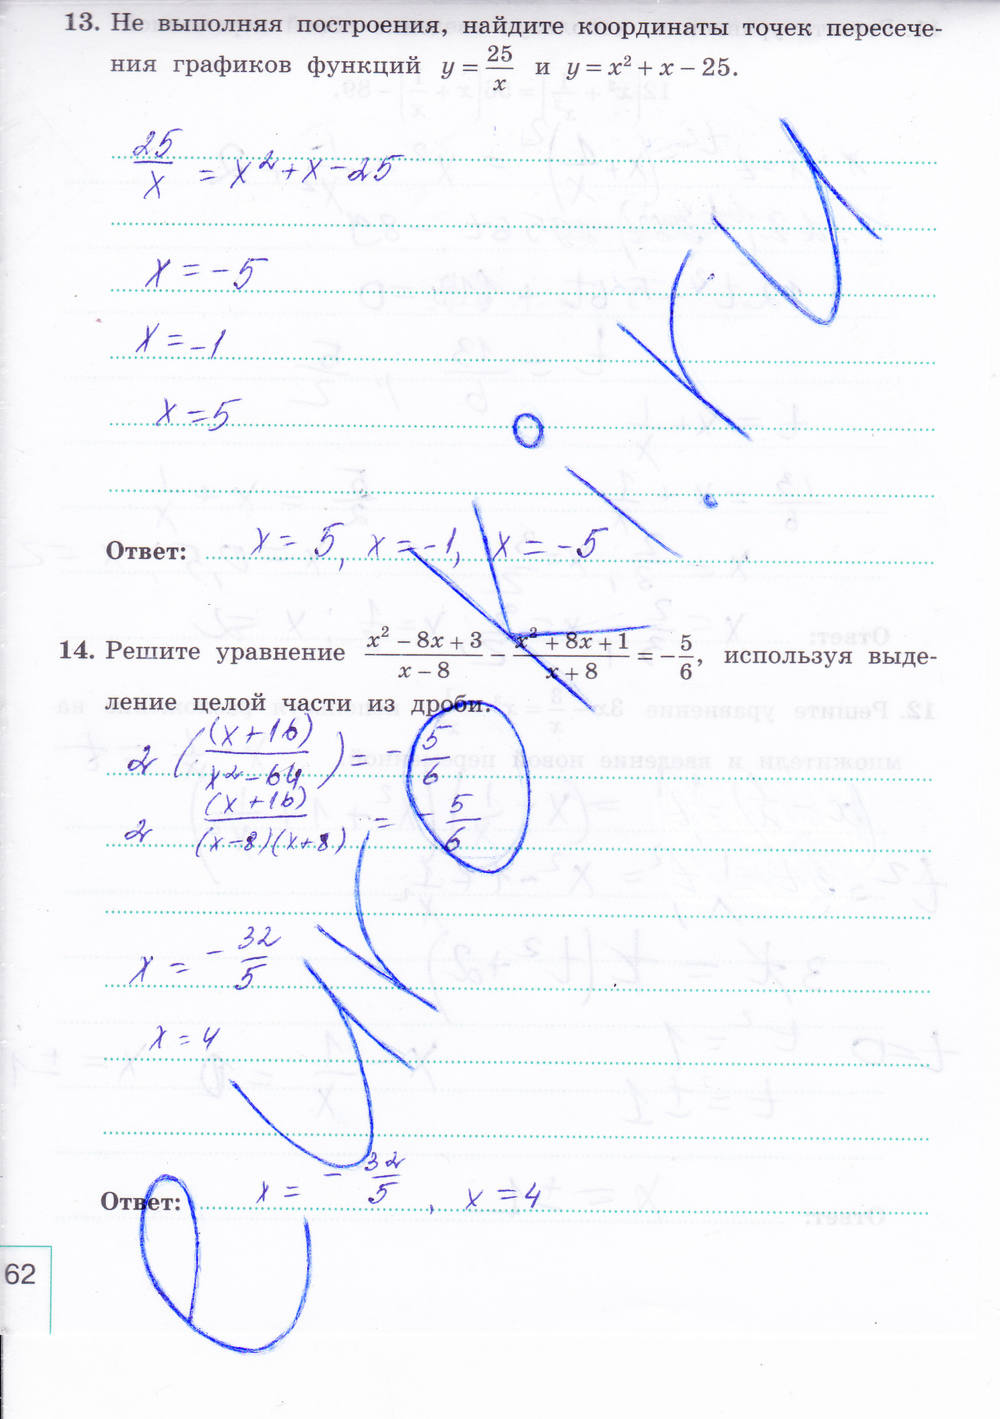 13. Не выполняя построения, найдите координаты точек пересече-
ния графиков функций y = 25/x и y = x² + x − 25.
25/x = x² + x − 25
x = −5
x = −1
x = 5
Ответ: x = 5, x = −1, x = −5
14. Решите уравнение (x² − 8x + 3)/(x − 8) − (x² + 8x + 1)/(x + 8) = −5/6, используя выде-
ление целой части из дроби.
2 ((x+16)/(x²−64)) = −5/6
2 (x+16)/((x−8)(x+8)) = −5/6
x = −32/5
x = 4
Ответ: x = −32/5, x = 4
62
euroki.ru